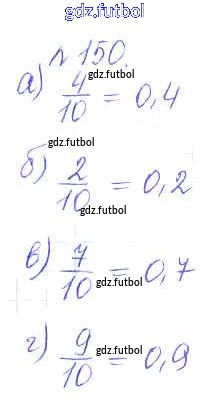 gdz.futbol
№ 150.
а) 4/10 = 0,4
gdz.futbol
gdz.futbol
б) 2/10 = 0,2
gdz.futbol
gdz.futbol
в) 7/10 = 0,7
gdz.futbol
gdz.futbol
г) 9/10 = 0,9
gdz.futbol